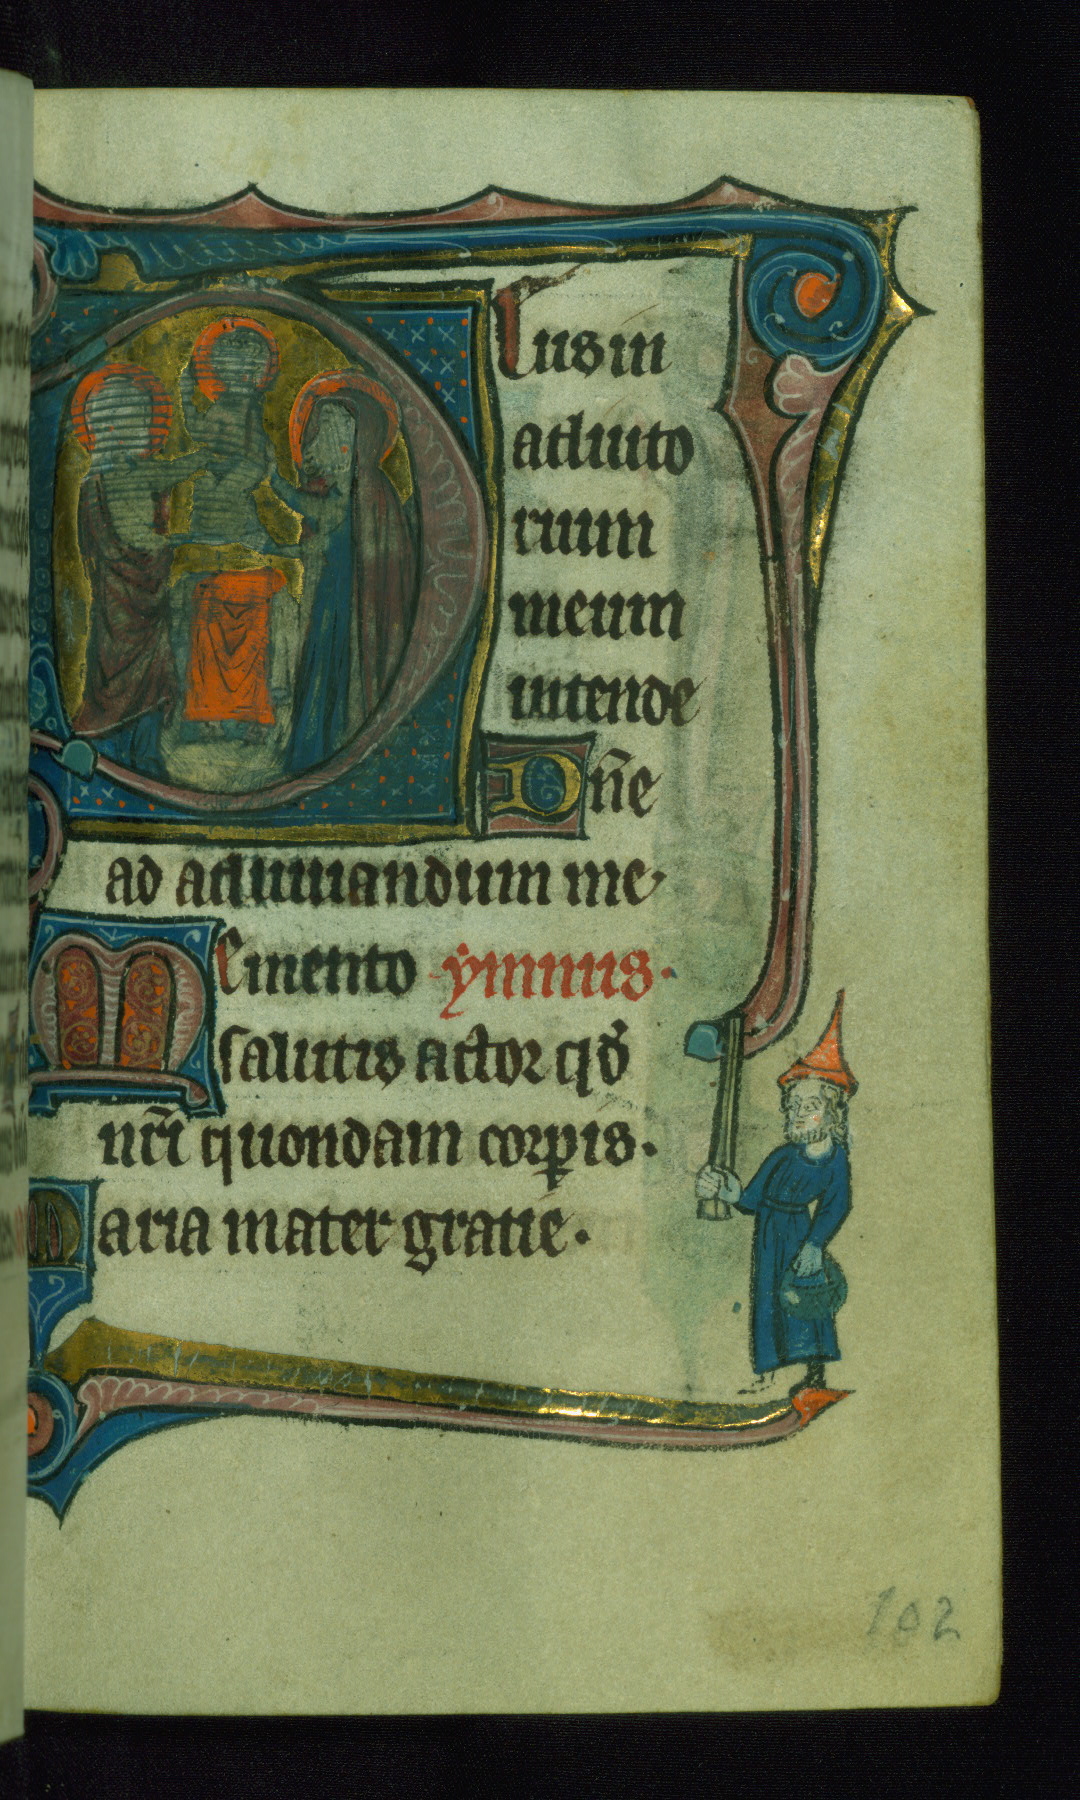 Deus in
adiuto
rium
meum
intende
Dn̄e
ad adiuuandum me·
Memento ymnus·
salutis actor qd̓
nr̄i quondam corꝑis·
Maria mater gratie·
102